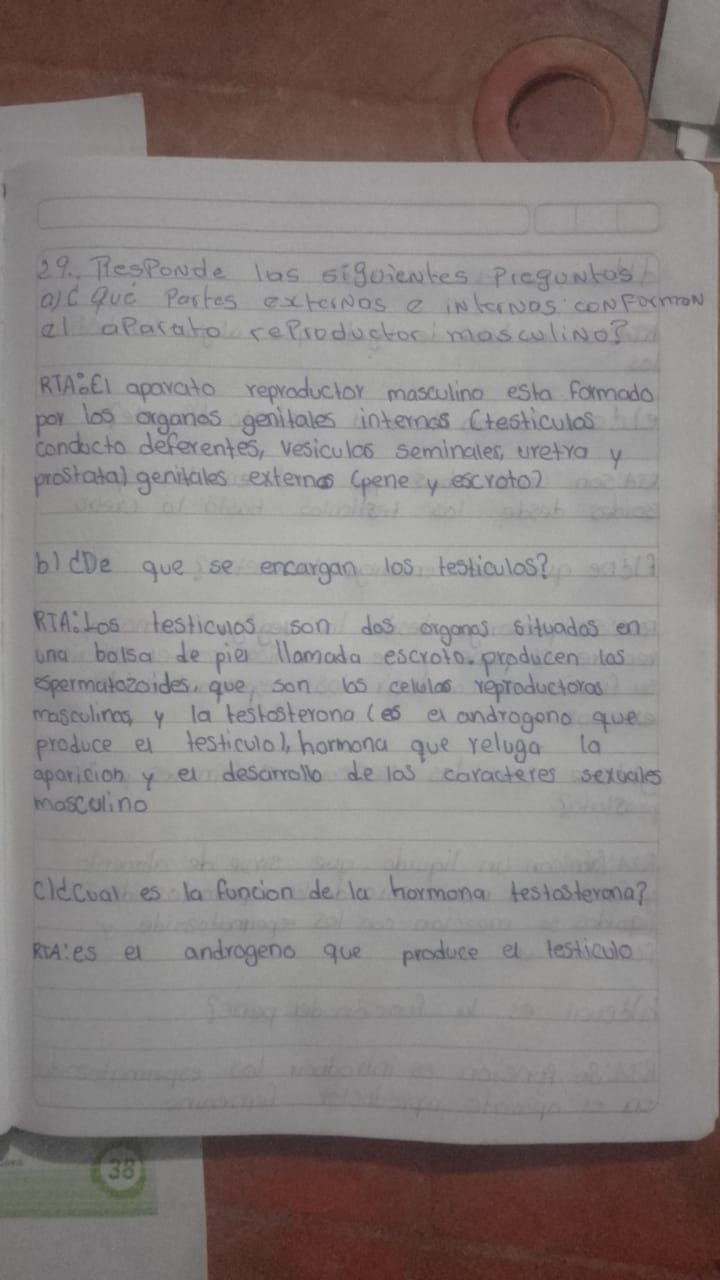 29. Responde las siguientes Preguntas
a) ¿ Qué Partes externas e internas conforman
el aparato reproductor masculino?
RTA: El aparato reproductor masculino esta formado
por los organos genitales internos (testiculos
conducto deferentes, vesiculos seminales, uretra y
prostata) genitales externos (pene y escroto)
b) ¿De que se encargan los testiculos?
RTA: Los testiculos son dos organos situados en
una bolsa de piel llamada escroto. producen los
espermatozoides, que son las celulas reproductoras
masculinas, y la testosterona (es el androgono que
produce el testiculo), hormona que reluga la
aparicion y el desarrollo de los caracteres sexuales
masculino
c) ¿Cual es la funcion de la hormona testosterona?
RTA: es el androgeno que produce el testiculo
38